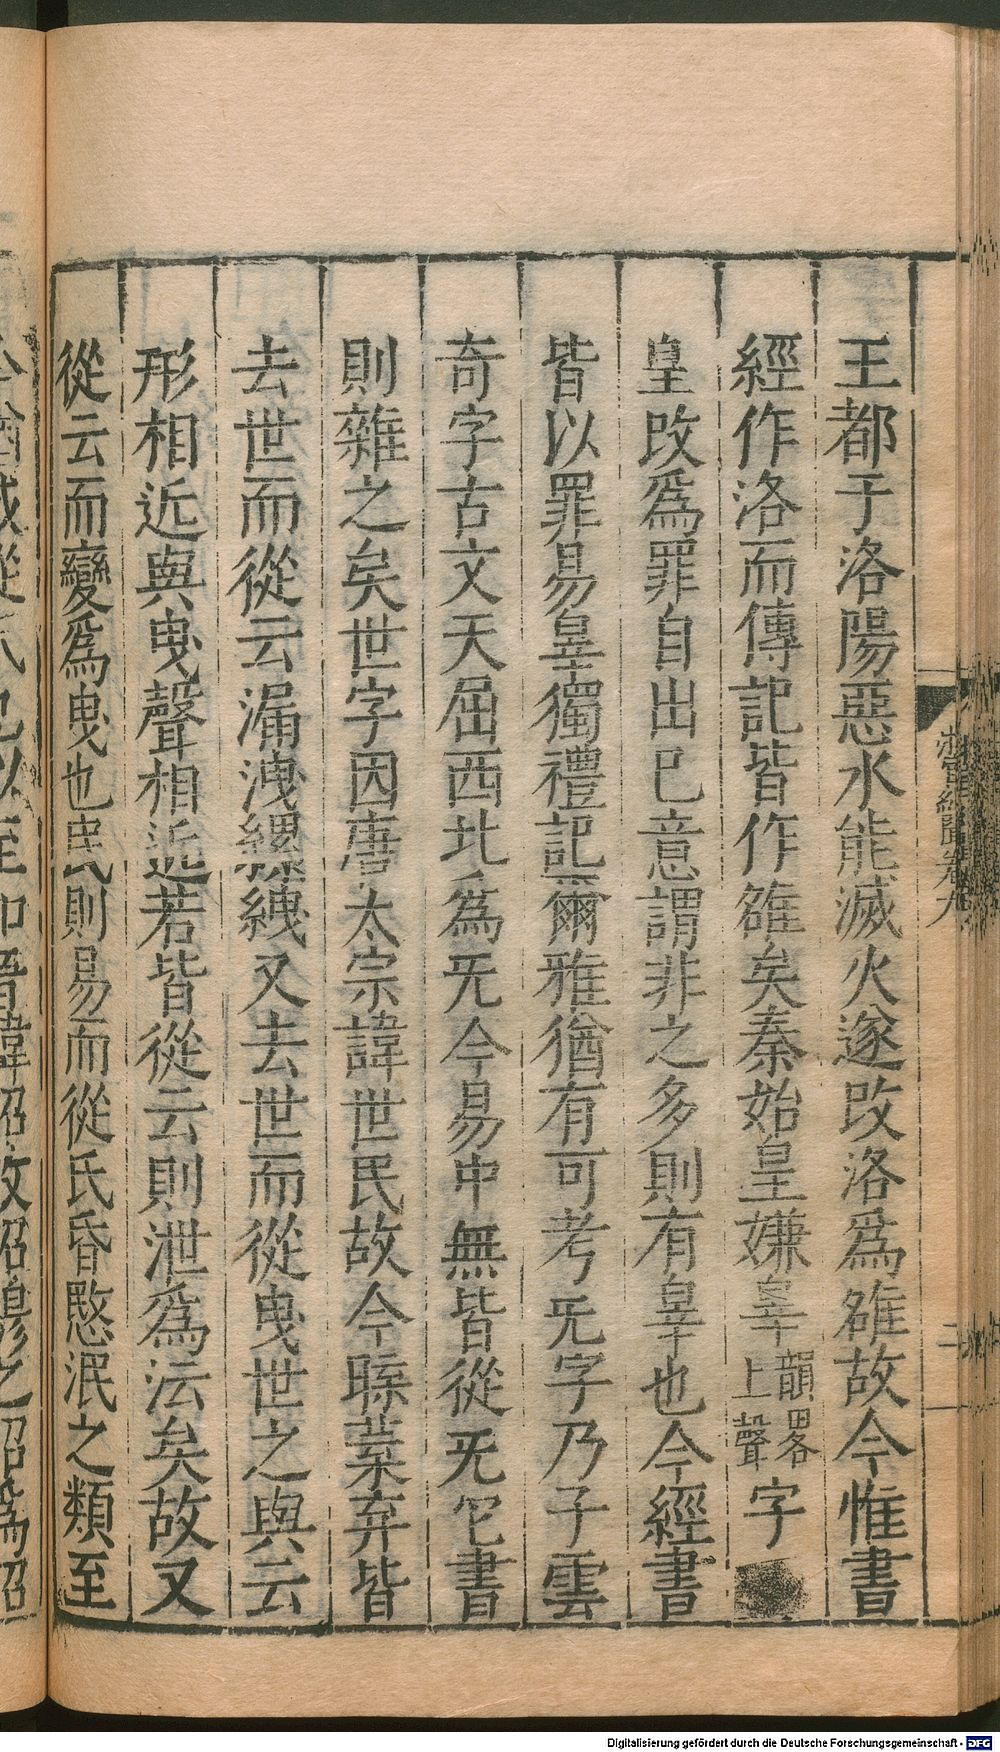 王都于洛陽惡水能滅火遂改洛爲雒故今惟書
經作洛而傳記皆作雒矣秦始皇嫌辠韻畧上聲字
皇改爲罪自出己意謂非之多則有辠也今經書
皆以罪易辠獨禮記爾雅猶有可考无字乃子雲
奇字古文天屈西北爲无今易中無皆從无它書
則雜之矣世字因唐太宗諱世民故今䑓葉弃皆
去世而從云漏洩縲絏又去世而從曳世之與云
形相近與曳聲相近若皆從云則泄爲沄矣故又
從云而變爲曳也民則易而從氏昏愍泯之類至
卷九
二
Digitalisierung gefördert durch die Deutsche Forschungsgemeinschaft - DFG